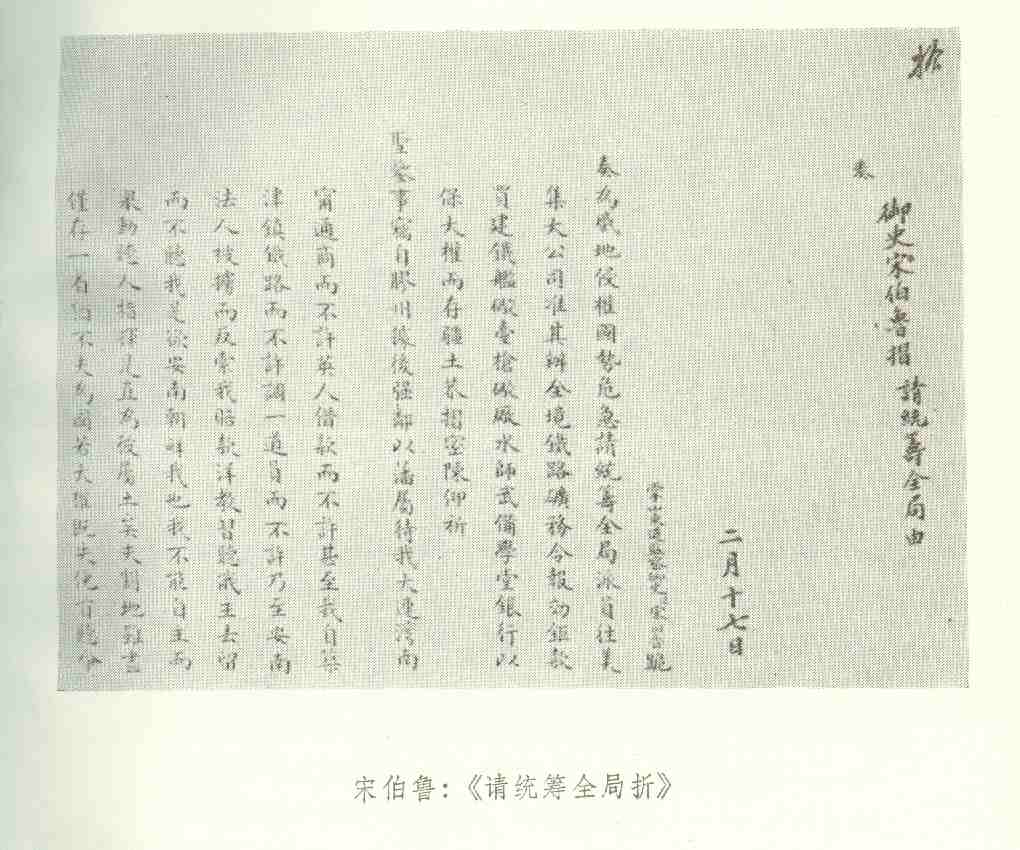 奏
御史宋伯魯摺 請統籌全局由
二月十七日
掌山東道監察御史宋伯魯跪
奏為威地侵權國勢危急請統籌全局派員往美
集大公司准其辦全境鐵路礦務令報効鉅款
買建鐵艦礮臺槍礮廠水師武備學堂銀行以
保大權而存疆土恭摺密陳仰祈
聖鑒事竊自膠州據後强鄰以藩屬待我大連灣南
甯通商而不許英人借款而不許甚至我自築
津鎮鐵路而不許調一道員而不許乃至安南
法人被擄而反索我賠款洋教習聽俄王去留
而不聽我是欲安南朝鮮我也我不能自主而
聽人指揮是直為彼屬土矣夫割地雖
僅存一 不失為國若大 既失
宋伯鲁：《请统筹全局折》